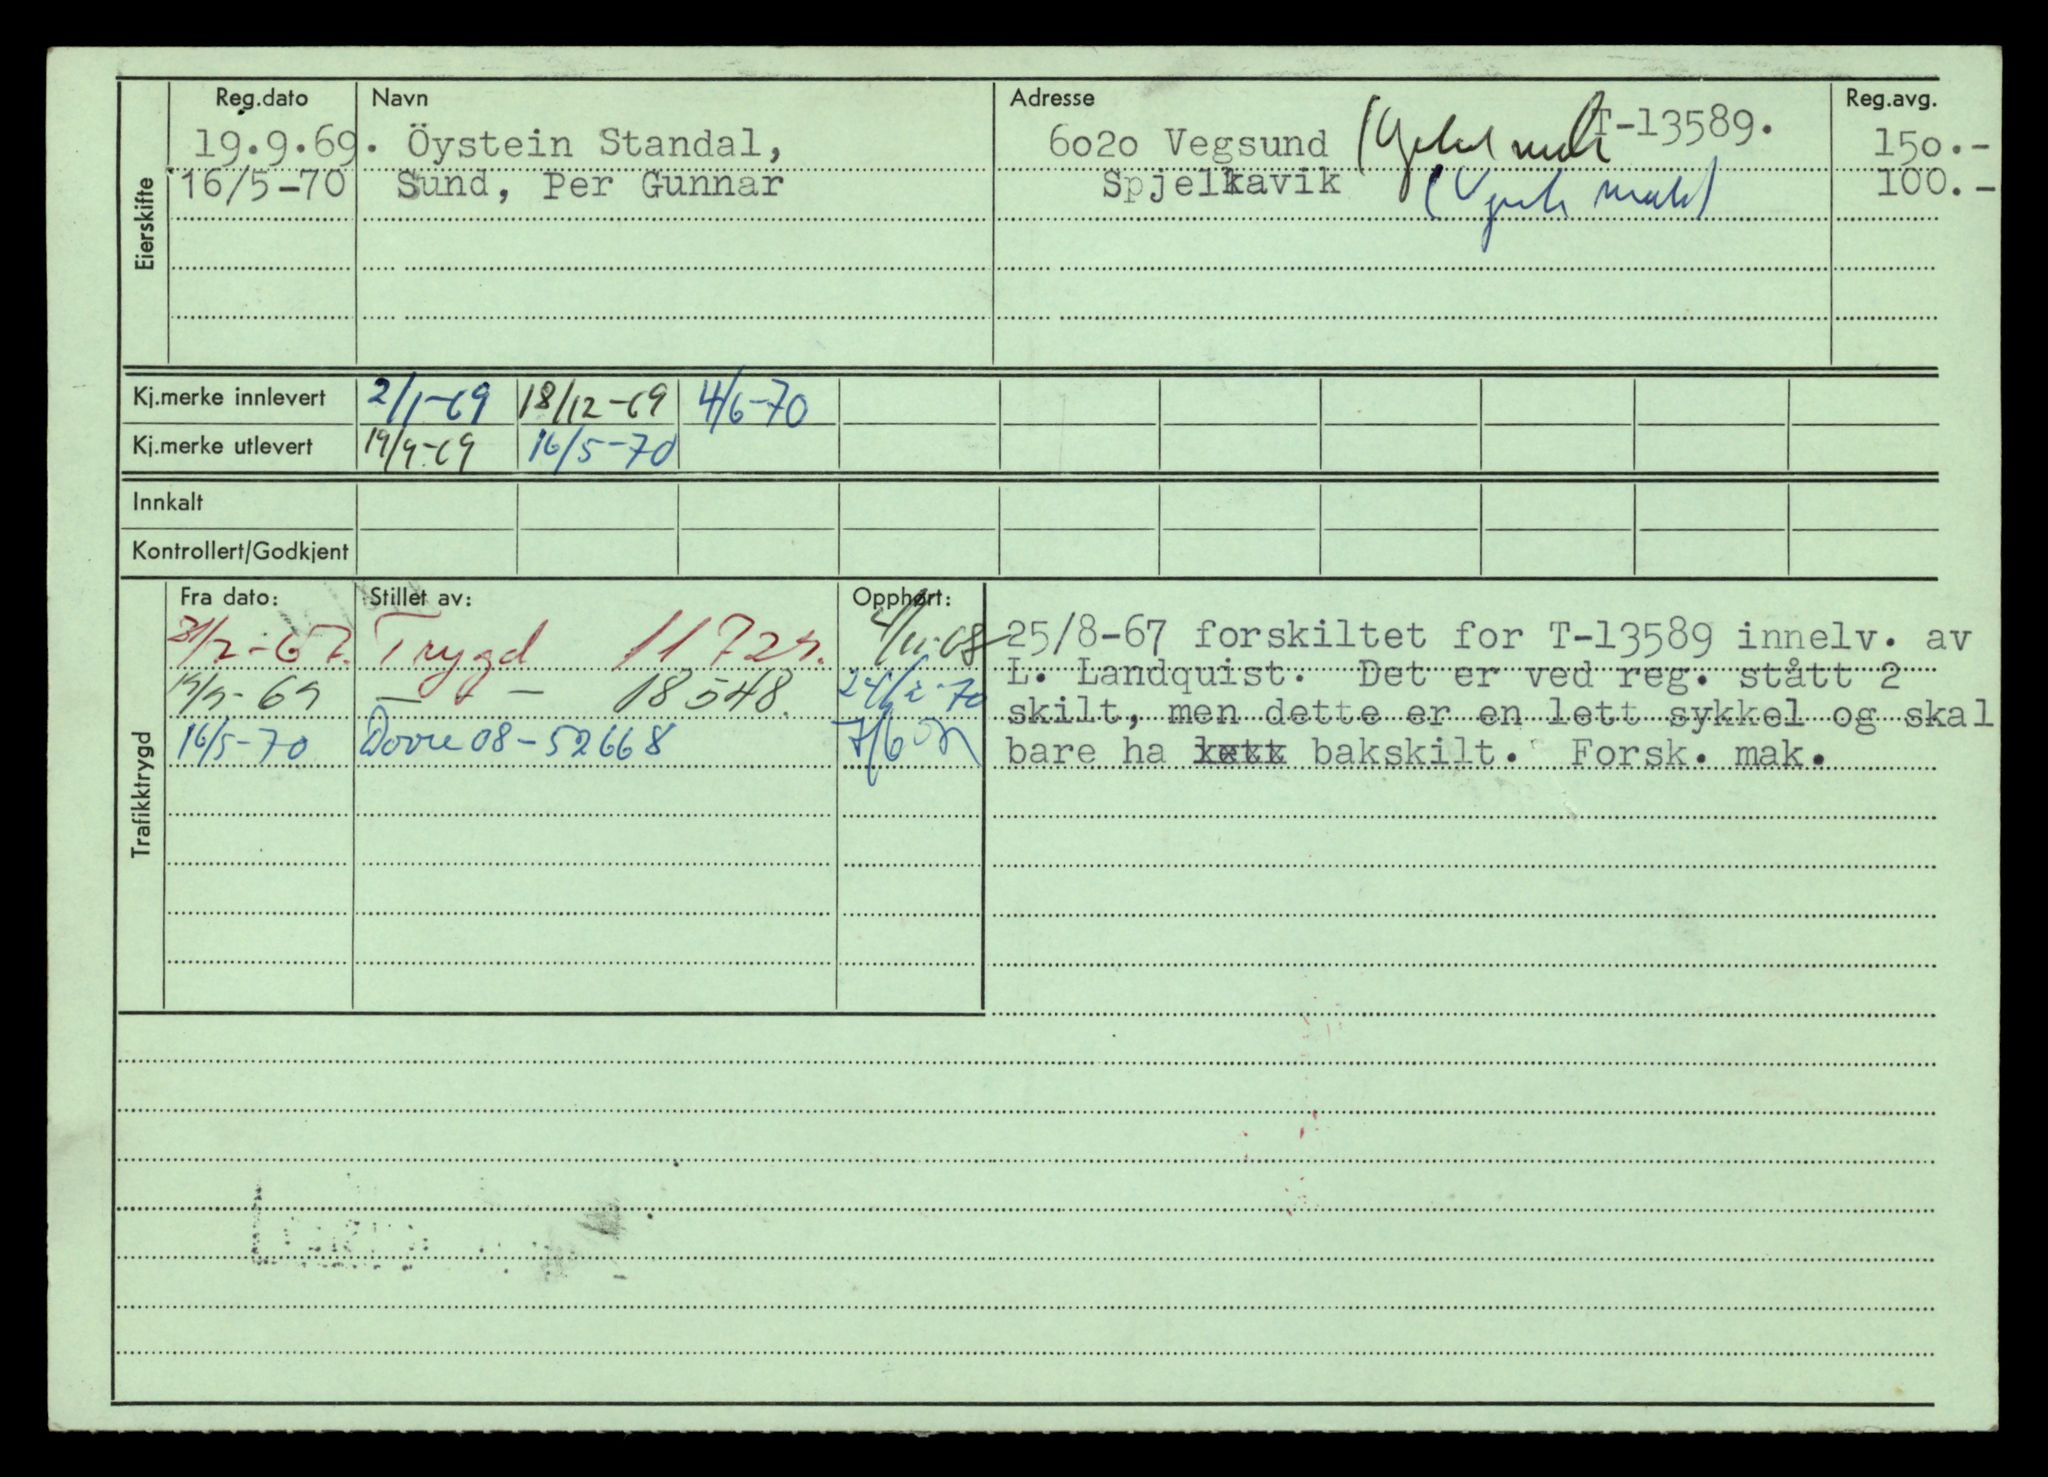 Reg.dato Navn Adresse Reg.avg.
T-13589.
19.9.69. Öystein Standal, 6020 Vegsund 150.-
16/5-70 Sund, Per Gunnar Spjelkavik 100.-
Eierskifte
Kj.merke innlevert 2/1-69 18/12-69 4/6-70
Kj.merke utlevert 19/9-69 16/5-70
Innkalt
Kontrollert/Godkjent
Trafikktrygd
Fra dato: Stillet av: Opphørt:
Trygd 4/11-68
19/9-69 — " — 18548. 24/2-70
16/5-70 Dovre 08-52668 7/6
25/8-67 forskiltet for T-13589 innelv. av
L. Landquist. Det er ved reg. stått 2
skilt, men dette er en lett sykkel og skal
bare ha bakskilt. Forsk. mak.